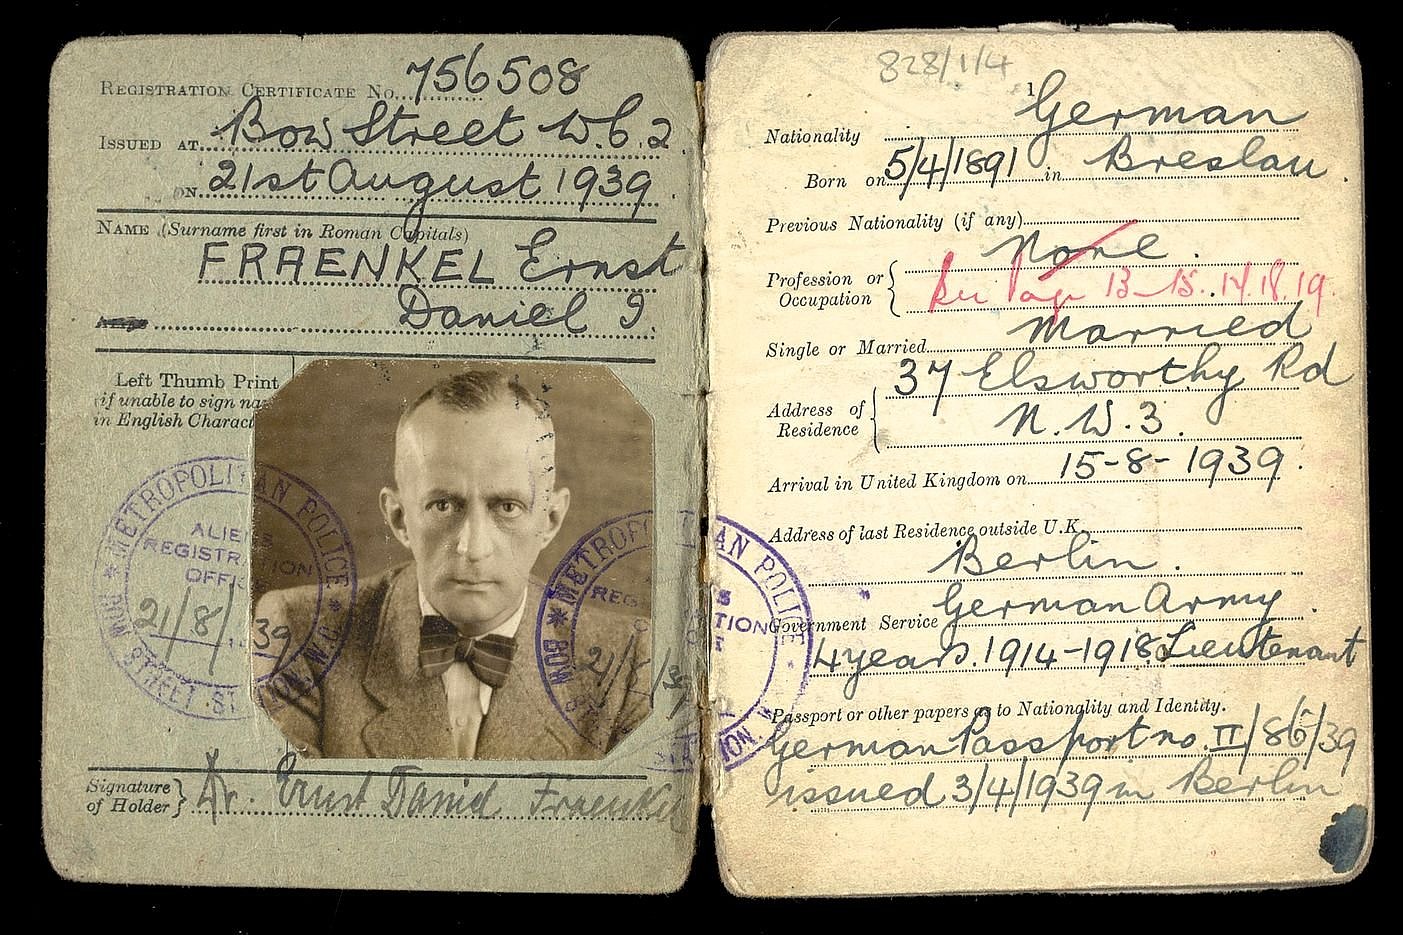 REGISTRATION CERTIFICATE No. 756508
ISSUED AT Bow Street W.C.2.
ON 21st August 1939.
NAME (Surname first in Roman Capitals)
FRAENKEL Ernst
Daniel I.
Left Thumb Print
if unable to sign na
in English Charact
METROPOLITAN POLICE
ALIENS
REGISTRATION
OFFICE
21/8/39
BOW STREET STATION W.C.
METROPO
REG
21/8/39
BOW
Signature
of Holder } Dr. Ernst Daniel Fraenkel
828/1/4
1
Nationality German
Born on 5/4/1891 in Breslau.
Previous Nationality (if any)
None.
Profession or
Occupation { See Page 13-15. 17. 18. 19.
Single or Married Married
Address of
Residence { 37 Elsworthy Rd
N.W.3.
Arrival in United Kingdom on 15-8-1939.
Address of last Residence outside U.K.
Berlin.
Government Service German Army.
4 years. 1914-1918 Lieutenant
Passport or other papers as to Nationality and Identity.
German Passport no. II/86/39
issued 3/4/1939 in Berlin
AN POLICE
TION